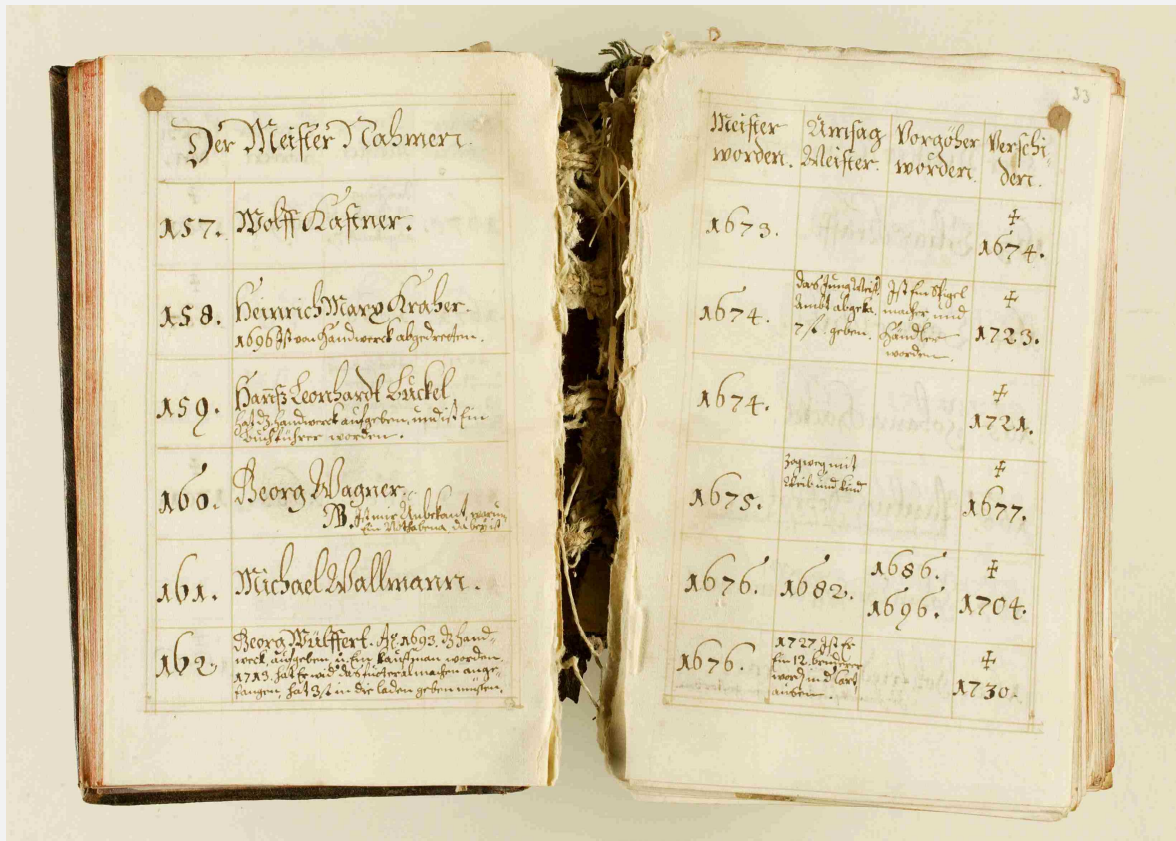 33
Der Meister Nahmen.
157. Wolff Kastner.
158. Heinrich Marx Kraber
1696 Ist von Handwerck abgedretten.
159. Hannß Leonhardt Buckel
hat dz handwerck aufgeben, und ist Ein
Buchführer worden.
160. Georg Wagner.
NB. Ist mir Unbekant, warum
Ein dabey ist
161. Michael Wallmann.
162. Georg Wülffert. Aº 1693. dz hand-
werck, aufgeben u. Ein Kaufman worden.
1713. hat Er wid das machen ange-
fangen, hat 3 f. in die laden geben müssen.
Meister
worden.
Umsag
Meister.
Vorgöher
worden.
Verschi-
den.
1673.
‡
1674.
1674.
das Jung Meist.
Ambt abgeka.
7 f. geben.
Ist Ein Spigel
macher und
Händler
worden.
‡
1723.
1674.
‡
1721.
1675.
Zog weg mit
Weib und Kind
‡
1677.
1676.
1682.
1686.
1696.
‡
1704.
1676.
1727 Ist Er
Ein 12.
word
‡
1730.